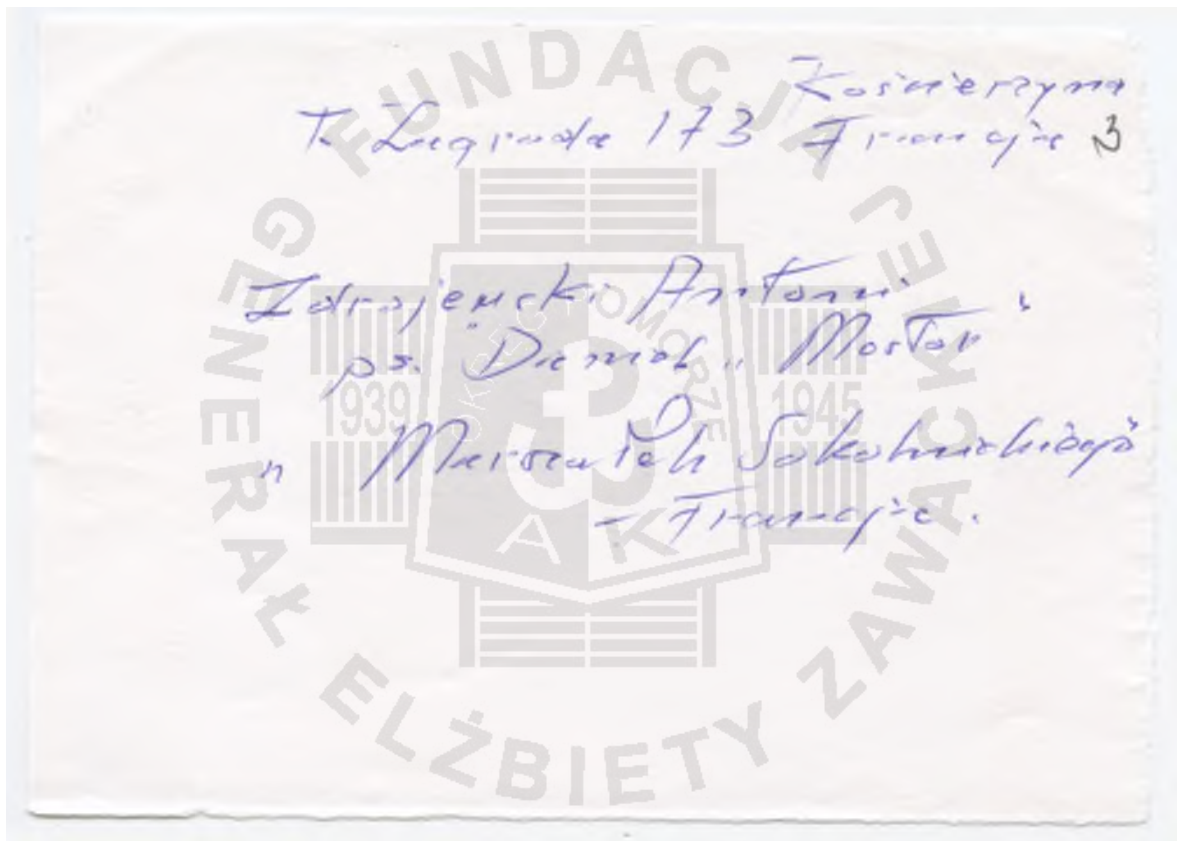 Kościerzyna
T. Zagroda 173 Francja 3
Zdrojewski Antoni
ps. "Daniel" "Mostar"
" Marszałek Sokolnickiego
- Francja.
FUNDACJA GENERAŁ ELŻBIETY ZAWACKIEJ
OKRĘG POMORZE
1939 1945
AK